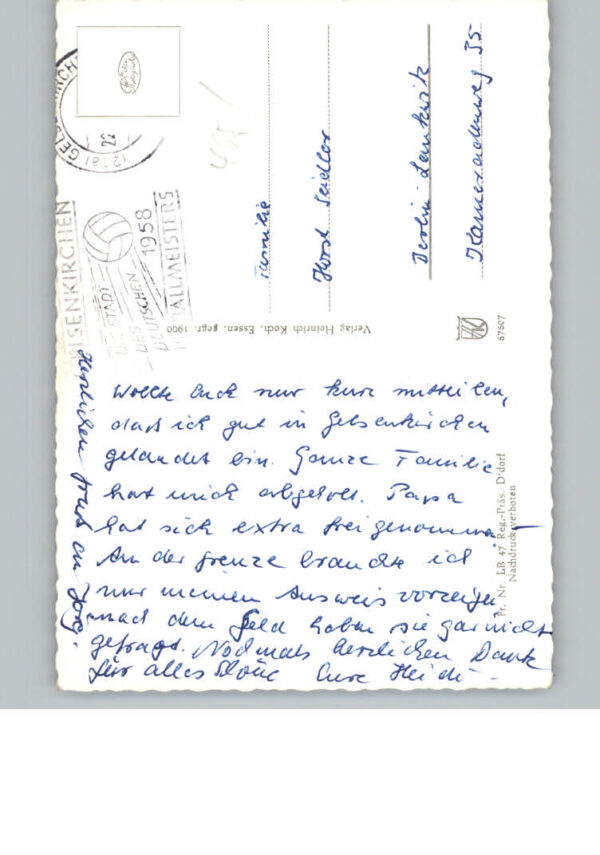 Wollte Euch nur kurz mitteilen,
daß ich gut in Gelsenkirchen
gelandet bin. Ganze Familie
hat mich abgeholt. Papa
hat sich extra frei genommen
An der Grenze brauchte ich
nur meinen Ausweis vorzeigen
nach dem Geld haben sie gar nicht
gefragt. Nochmals herzlichen Dank
für alles Schöne Eure Heidi.
Herzlichen Gruß an Jörg.
Familie
Horst Seidler
Berlin-Lankwitz
Kameradenweg 35
GELSENKIRCHEN
(22a)
22
GELSENKIRCHEN
DIE STADT
DES DEUTSCHEN
FUSSBALLMEISTERS
1958
Verlag Heinrich Koch, Essen, gegr. 1900
57507
Pr. Nr. LB 47 Reg.-Präs. D'dorf
Nachdruck verboten